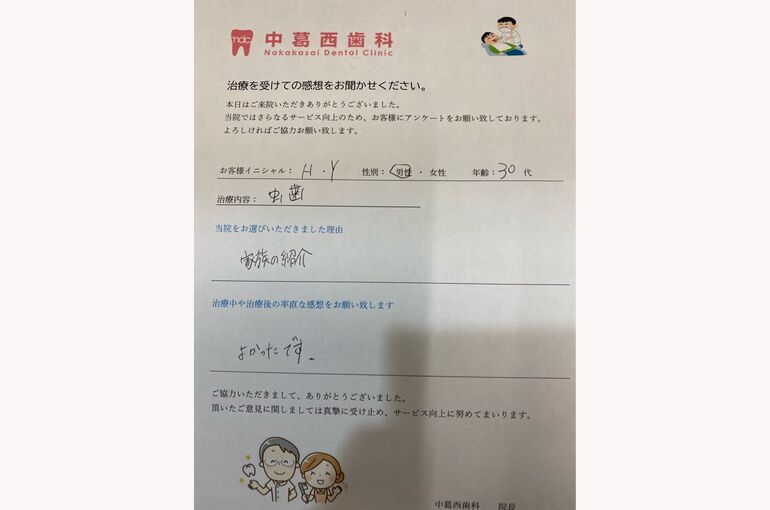 mdc
中葛西歯科
Nakakasai Dental Clinic
治療を受けての感想をお聞かせください。
本日はご来院いただきありがとうございました。
当院ではさらなるサービス向上のため、お客様にアンケートをお願い致しております。
よろしければご協力お願い致します。
お客様イニシャル： H ・ Y 性別： 男性 ・ 女性 年齢： 30 代
治療内容： 虫歯
当院をお選びいただきました理由
家族の紹介
治療中や治療後の率直な感想をお願い致します
よかったです。
ご協力いただきまして、ありがとうございました。
頂いたご意見に関しましては真摯に受け止め、サービス向上に努めてまいります。
中葛西歯科 院長